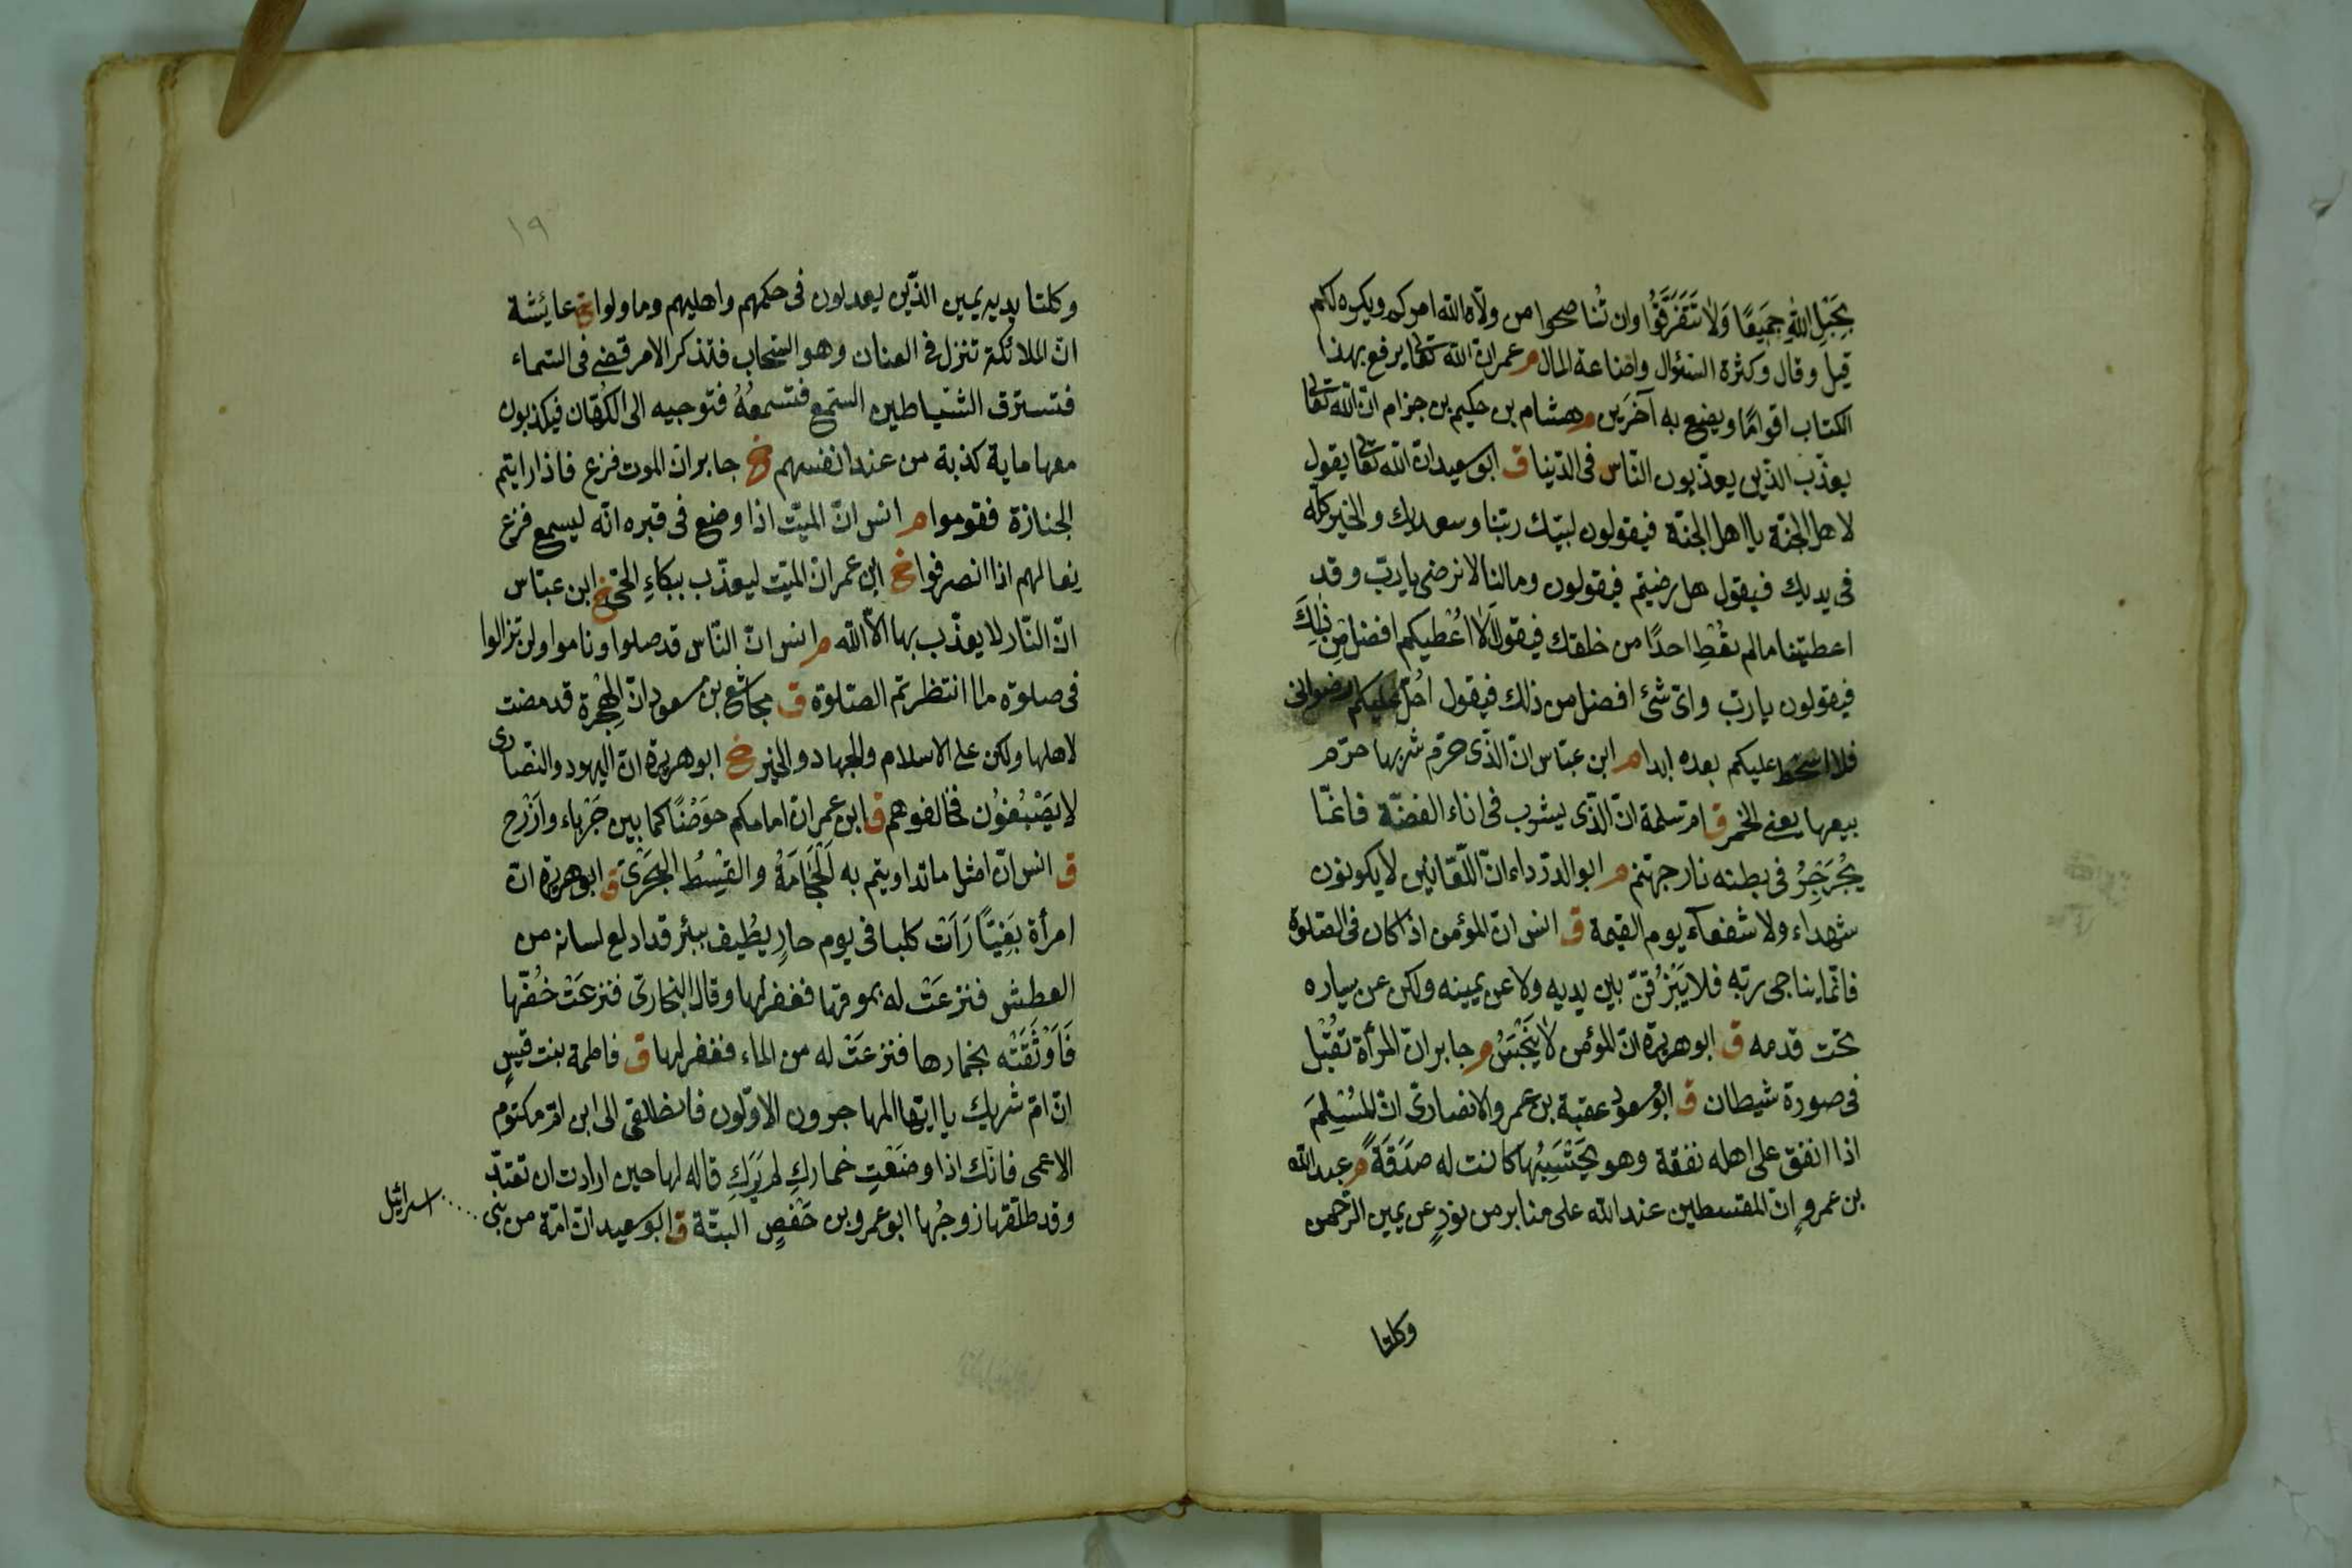 بِحَبْلِ اللّٰهِ جَمِيعًا وَلَا تَتَفَرَّقُوا وان تُناصحوا من ولّاه اللّه امركم ويكره لكم
قيل وقال وكثرة السّئوال واضاعة المال م عمر انّ اللّه تعالى يرفع بهذا
الكتاب اقوامًا ويضع به آخرَين م هشام بن حكيم بن حزام انّ اللّه تعالى
يعذّب الذّين يعذّبون النّاس فى الدّنيا ق ابو سعيد انّ اللّه تعالى يقول
لاهل الجنّة يا اهل الجنّة فيقولون لبّيك ربّنا وسعديك والخير كلّه
فى يديك فيقول هل رضيتم فيقولون وما لنا لا نرضى يا ربّ وقد
اعطيتنا مالم تُعْطِ احدًا من خلقك فيقول اَلَا اُعْطيكم افضل مِن ذٰلِكَ
فيقولون يا ربّ واىّ شئ افضل من ذلك فيقول اُحلّ عليكم رضوانى
فلا اسخط عليكم بعده ابدا م ابن عبّاس انّ الذّى حرّم شربها حرّم
بيعها يعنى الخمر ق امّ سلمة انّ الذّى يشرب فى اناء الفضّة فانمّا
يُجَرْجِرُ فى بطنه نار جهنّم م ابو الدرّداء انّ اللّعّانين لا يكونون
شهداء ولا شفعاء يوم القيمة ق انس انّ المؤمن اذا كان فى الصّلوة
فانّما يناجى ربّه فلا يَبْزُقَنّ بين يديه ولا عن يمينه ولكن عن يساره
تحت قدمه ق ابو هريرة انّ المؤمن لَا يَنْجُسُ م جابر انّ المرأة تُقْبل
فى صورة شيطان ق ابو مسعود عقبة بن عمرو الانصارىّ انّ المُسْلِمَ
اذا انفق على اهله نفقة وهو يَحْتَسِبُها كانت له صَدَقَةً م عبد اللّه
بن عمروٍ انّ المقسطين عند اللّه على منابر من نورٍ عن يمين الرّحمن
وكلتا
١٩
وكلتا يديه يمين الذّين يعدلون فى حكمهم واهليهم وما ولوا خ عايئشة
انّ الملائكة تنزل فى العنان وهو السّحاب فتذكر الامر قضى فى السّماء
فتسترق الشّياطين السّمع فتسمعُهُ فتوحيه الى الكُهّان فيكذبون
معها ماية كذبة من عند انفسهم خ جابر انّ الموت فزع فاذا رايتم
الجنازة فقوموا م انس انّ الميّت اذا وضع فى قبره انّه ليسمع قرع
نعالهم اذا انصرفوا خ ابن عمر انّ الميّت ليعذّب ببكاءِ الحىّ خ ابن عبّاس
انّ النّار لا يعذّب بها الاّ اللّه م انس انّ النّاس قد صلوا وناموا ولن تزالوا
فى صلوة ما انتظرتم الصّلوة ق مجاشع بن مسعود انّ الهِجْرة قد مضت
لاهلها ولكن على الاسلام والجهاد والخير خ ابو هريرة انّ اليهود والنّصارى
لا يَصْبُغُون فخالفوهم ق ابن عمر انّ امامكم حَوْضًا كما بين جَرْباء وأَذْرح
ق انس انّ امثل ما تداويتم به الْحِجَامَةُ والقِسْطُ البَحْرىّ ق ابو هريرة انّ
امرأة بَغِيًّا رَأَت كلبا فى يوم حارٍ يطُيف ببئر قد ادلع لسانه من
العطش فنزعَتْ له بموقها فغفر لها وقال البخارىّ فنزعَتْ خُفّها
فَأَوْثَقَتْه بخمارها فنزعَتْ له من الماء فغفر لها ق فاطمة بنت قيسٍ
انّ امّ شريك يا ايتّها المهاجرون الاوّلون فانطلقى الى ابن امّ مكتوم
الاعمى فانّك اذا وضَعْتِ خماركِ لم يَرَكِ قاله لها حين ارادت ان تعتدّ
وقد طلّقها زوجُها ابو عمرو بن حَفْصٍ البتّة ق ابو سعيد انّ امّة من بنى
اسرائيل